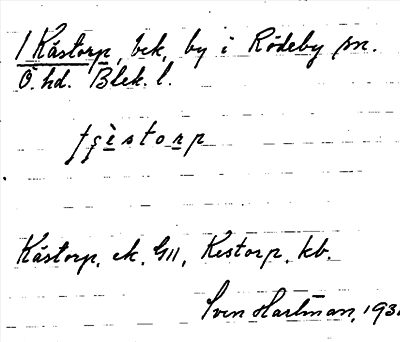 1 Kåstorp, bek, by i Rödeby sn.
Ö. hd. Blek. l.
Kåstorp, ek. G11, Kestorp, kb.
Sven Hartman, 193